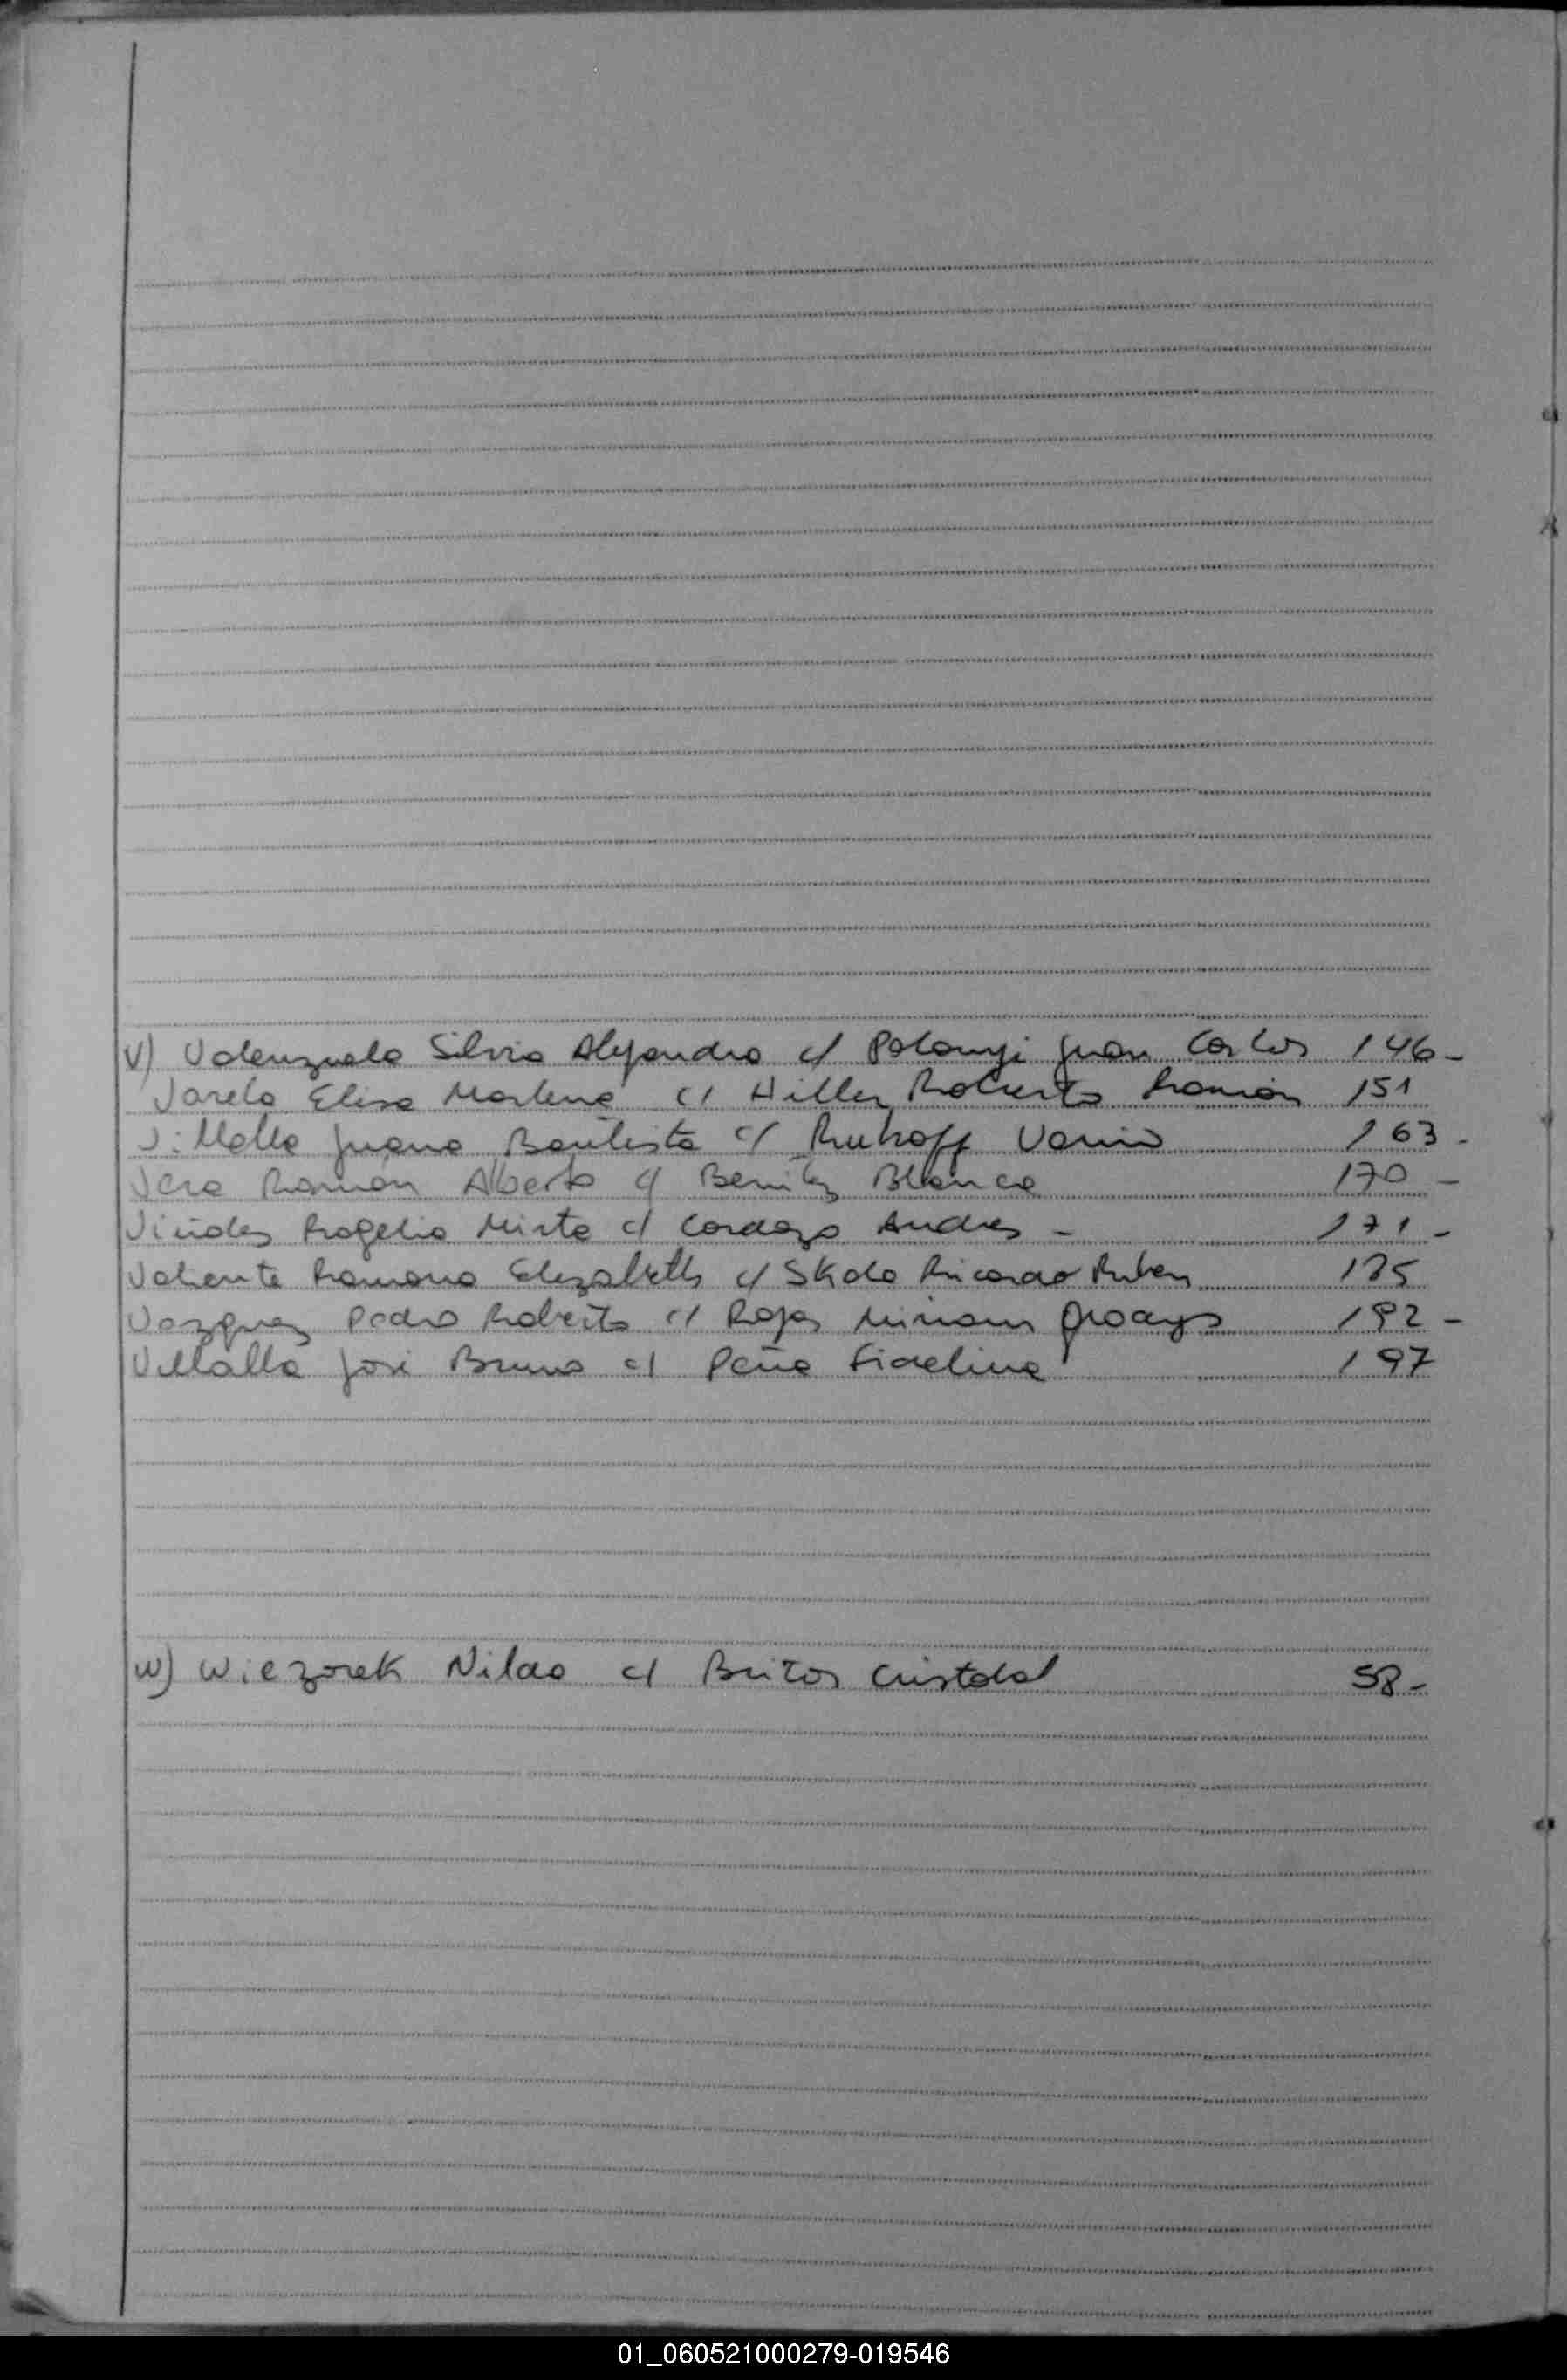 V) Valenzuela Silvia Alejandra c/ Polanyi Juan Carlos 146-
Varela Elisa Marlene c/ Hiller Roberto Ramón 151
Villalba Juana Bautista c/ Ruhoff Vanio 163-
Vera Ramón Alberto c/ Benitez Blanca 170-
Viñoles Rogelia Mirta c/ Cardozo Andres - 171-
Valiente Ramona Elizabeth c/ Skolo Ricardo Ruben 185
Vazquez Pedro Roberto c/ Rojas Miriam 192-
Villalba José Bruno c/ Peña Fidelina 197
W) Wiezorek Nilda c/ Britos Cristobal 58-
01_060521000279-019546